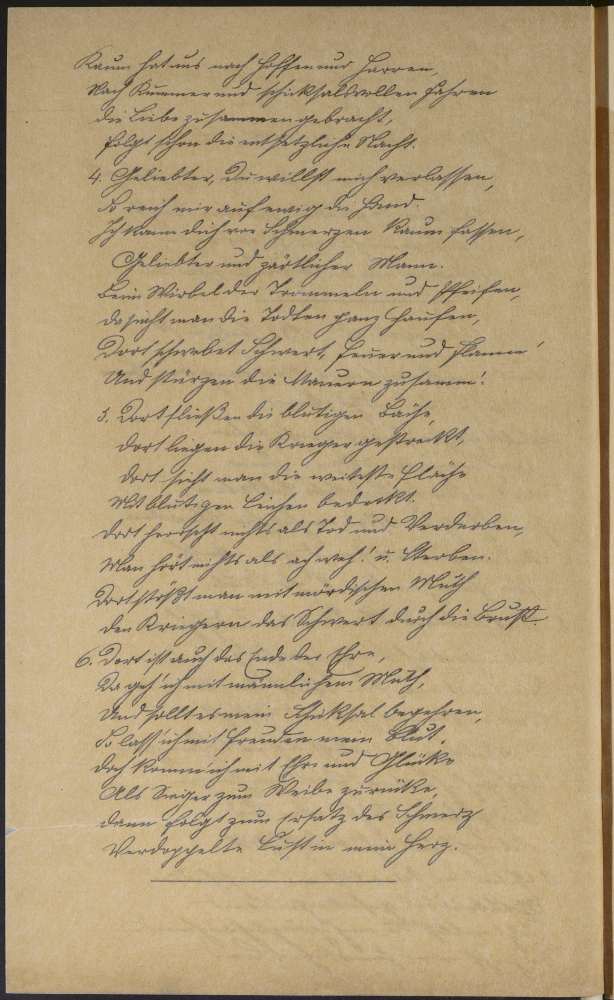 Kaum hat uns nach Hoffen und Harren,
Nach Kummer und schicksalsvollen Jahren
die Liebe zusammengebracht,
folgt schon die entsetzliche Nacht.
4. Geliebter, Du willst mich verlassen,
So reich mir auf ewig die Hand.
Ich kann dich vor Schmerzen kaum fassen,
Geliebter und zärtlicher Mann.
Beim Wirbel der Trommeln und Pfeifen,
da sieht man die Todten ganz Haufen,
Dort schwebet Schwert, Feuer und Flamm'
Und stürzen die Mauern zusamm'!
5. Dort fließen die blutigen Bäche,
dort liegen die Krieger gestreckt,
dort sieht man die weiteste Fläche
Mit blutigen Leichen bedeckt.
dort herrscht nichts als Tod und Verderben,
Man hört nichts als ach weh! u. Sterben.
Dort stößt man mit mördischen Muth
den Kriegern das Schwert durch die Brust.
6. Dort ist auch das Ende der Ehre,
Da geh' ich mit männlichem Muth,
Und sollt es mein Schicksal begehren,
So lass' ich mit Freuden mein Blut.
doch komm' ich mit Ehr und Glücke
Als Sieger zum Weibe zurücke,
dann folgt zum Ersatz des Schmerz
Verdoppelte Lust in mein Herz.